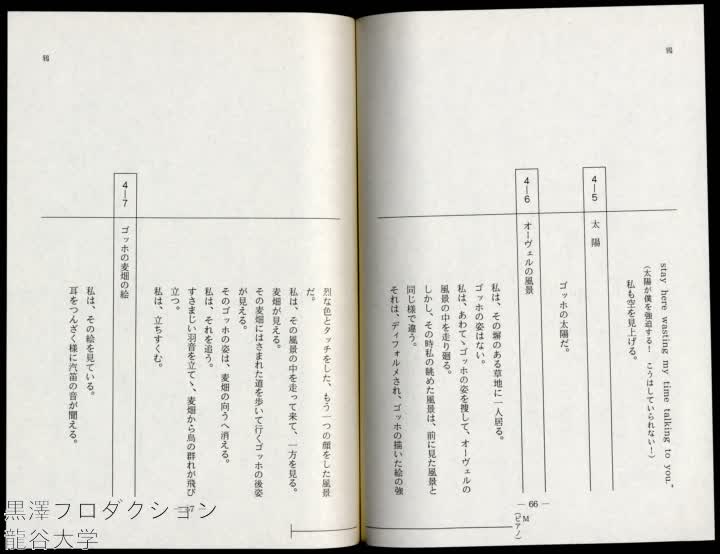 鴉
stay here wasting my time talking to you."
(太陽が僕を強迫する! こうはしていられない!)
私も空を見上げる。
4—5 太陽
ゴッホの太陽だ。
4—6 オーヴェルの風景
私は、その塀のある草地に一人居る。
ゴッホの姿はない。
私は、あわてゝゴッホの姿を捜して、オーヴェルの
風景の中を走り廻る。
しかし、その時私の眺めた風景は、前に見た風景と
同じ様で違う。
それは、ディフォルメされ、ゴッホの描いた絵の強
— 66 —
M
(ピアノ)
鴉
烈な色とタッチをした、もう一つの顔をした風景
だ。
私は、その風景の中を走って来て、一方を見る。
麦畑が見える。
その麦畑にはさまれた道を歩いて行くゴッホの後姿
が見える。
そのゴッホの姿は、麦畑の向うへ消える。
私は、それを追う。
すさまじい羽音を立てゝ、麦畑から烏の群れが飛び
立つ。
私は、立ちすくむ。
4—7 ゴッホの麦畑の絵
私は、その絵を見ている。
耳をつんざく様に汽笛の音が聞える。
黒澤プロダクション
龍谷大学